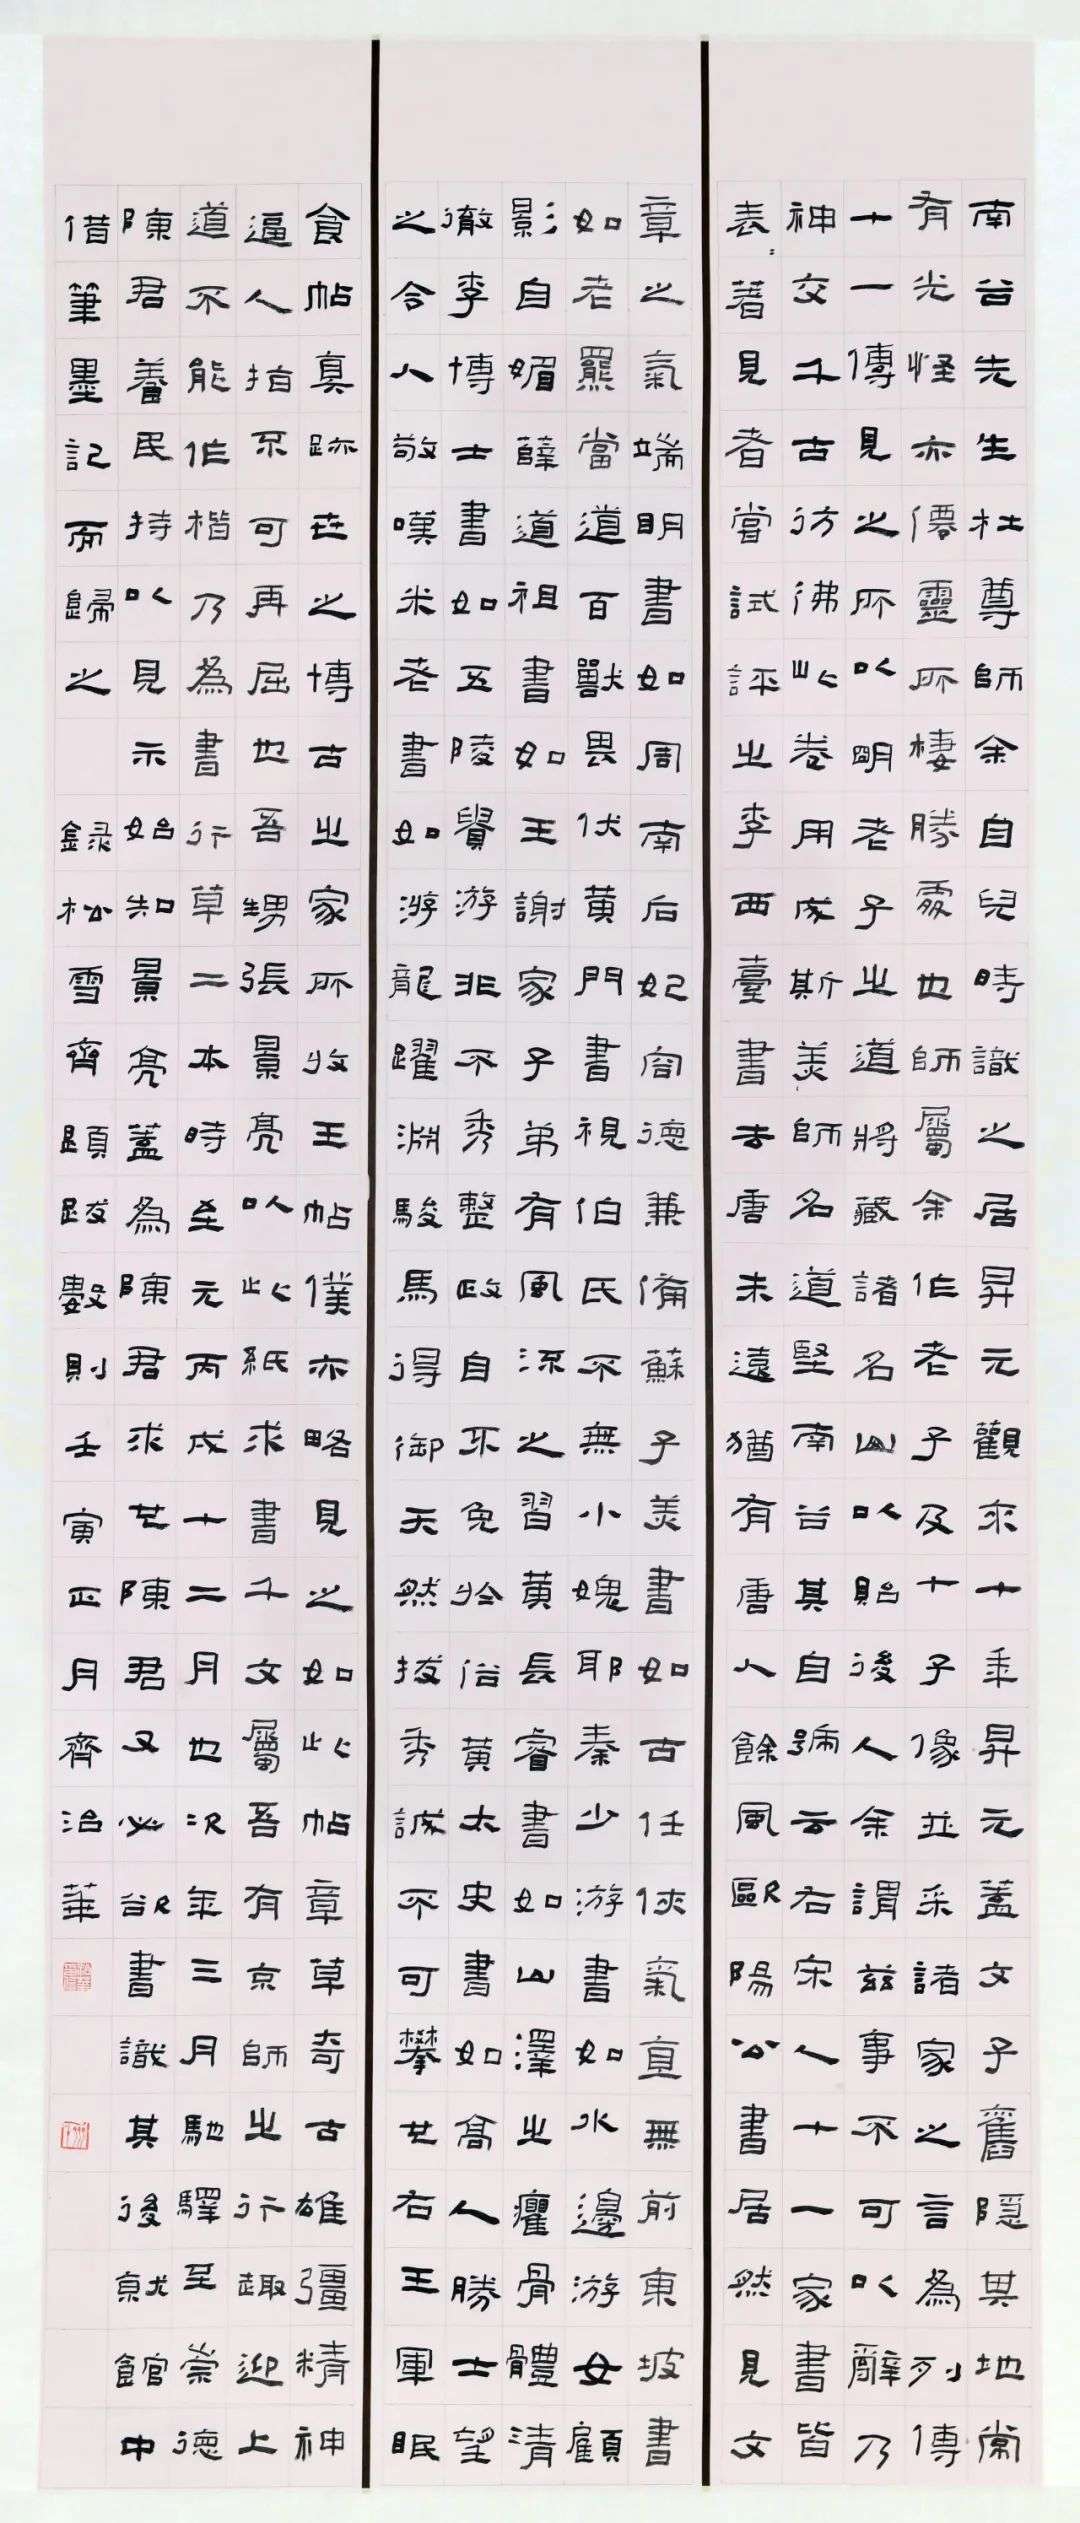 南谷先生杜尊師余自兒時識之居昇元觀來十年昇元蓋文子舊隱其地常
有光怪亦僊靈所棲勝處也師屬余作老子及十子像並采諸家之言為列傳
十一傳見之所以明老子之道將藏諸名山以貽後人余謂茲事不可以辭乃
神交千古彷彿此卷用成斯美師名道堅南谷其自號云右宋人十一家書皆
表〻著見者嘗試評之李西臺書去唐未遠猶有唐人餘風歐陽公書居然見文
章之氣端明書如周南后妃容德兼備蘇子美書如古任俠氣直無前東坡書
如老羆當道百獸畏伏黃門書視伯氏不無小媿耶秦少游書如水邊游女顧
影自媚薛道祖書如王謝家子弟有風流之習黃長睿書如山澤之癯骨體清
徹李博士書如五陵貴游非不秀整政自不免於俗黃太史書如高人勝士望
之令人敬嘆米老書如游龍躍淵駿馬得御天然拔秀誠不可攀也右王軍眠
食帖真跡世之博古之家所收王帖僕亦略見之如此帖章草奇古雄彊精神
逼人指不可再屈也吾甥張景亮以此紙求書千文屬吾有京師之行趣迎上
道不能作楷乃為書行草二本時至元丙戌十二月也次年三月馳驛至崇德
陳君養民持以見示始知景亮蓋為陳君求也陳君又必欲書識其後就館中
借筆墨記而歸之 錄松雪齊題跋數則壬寅正月齊治華